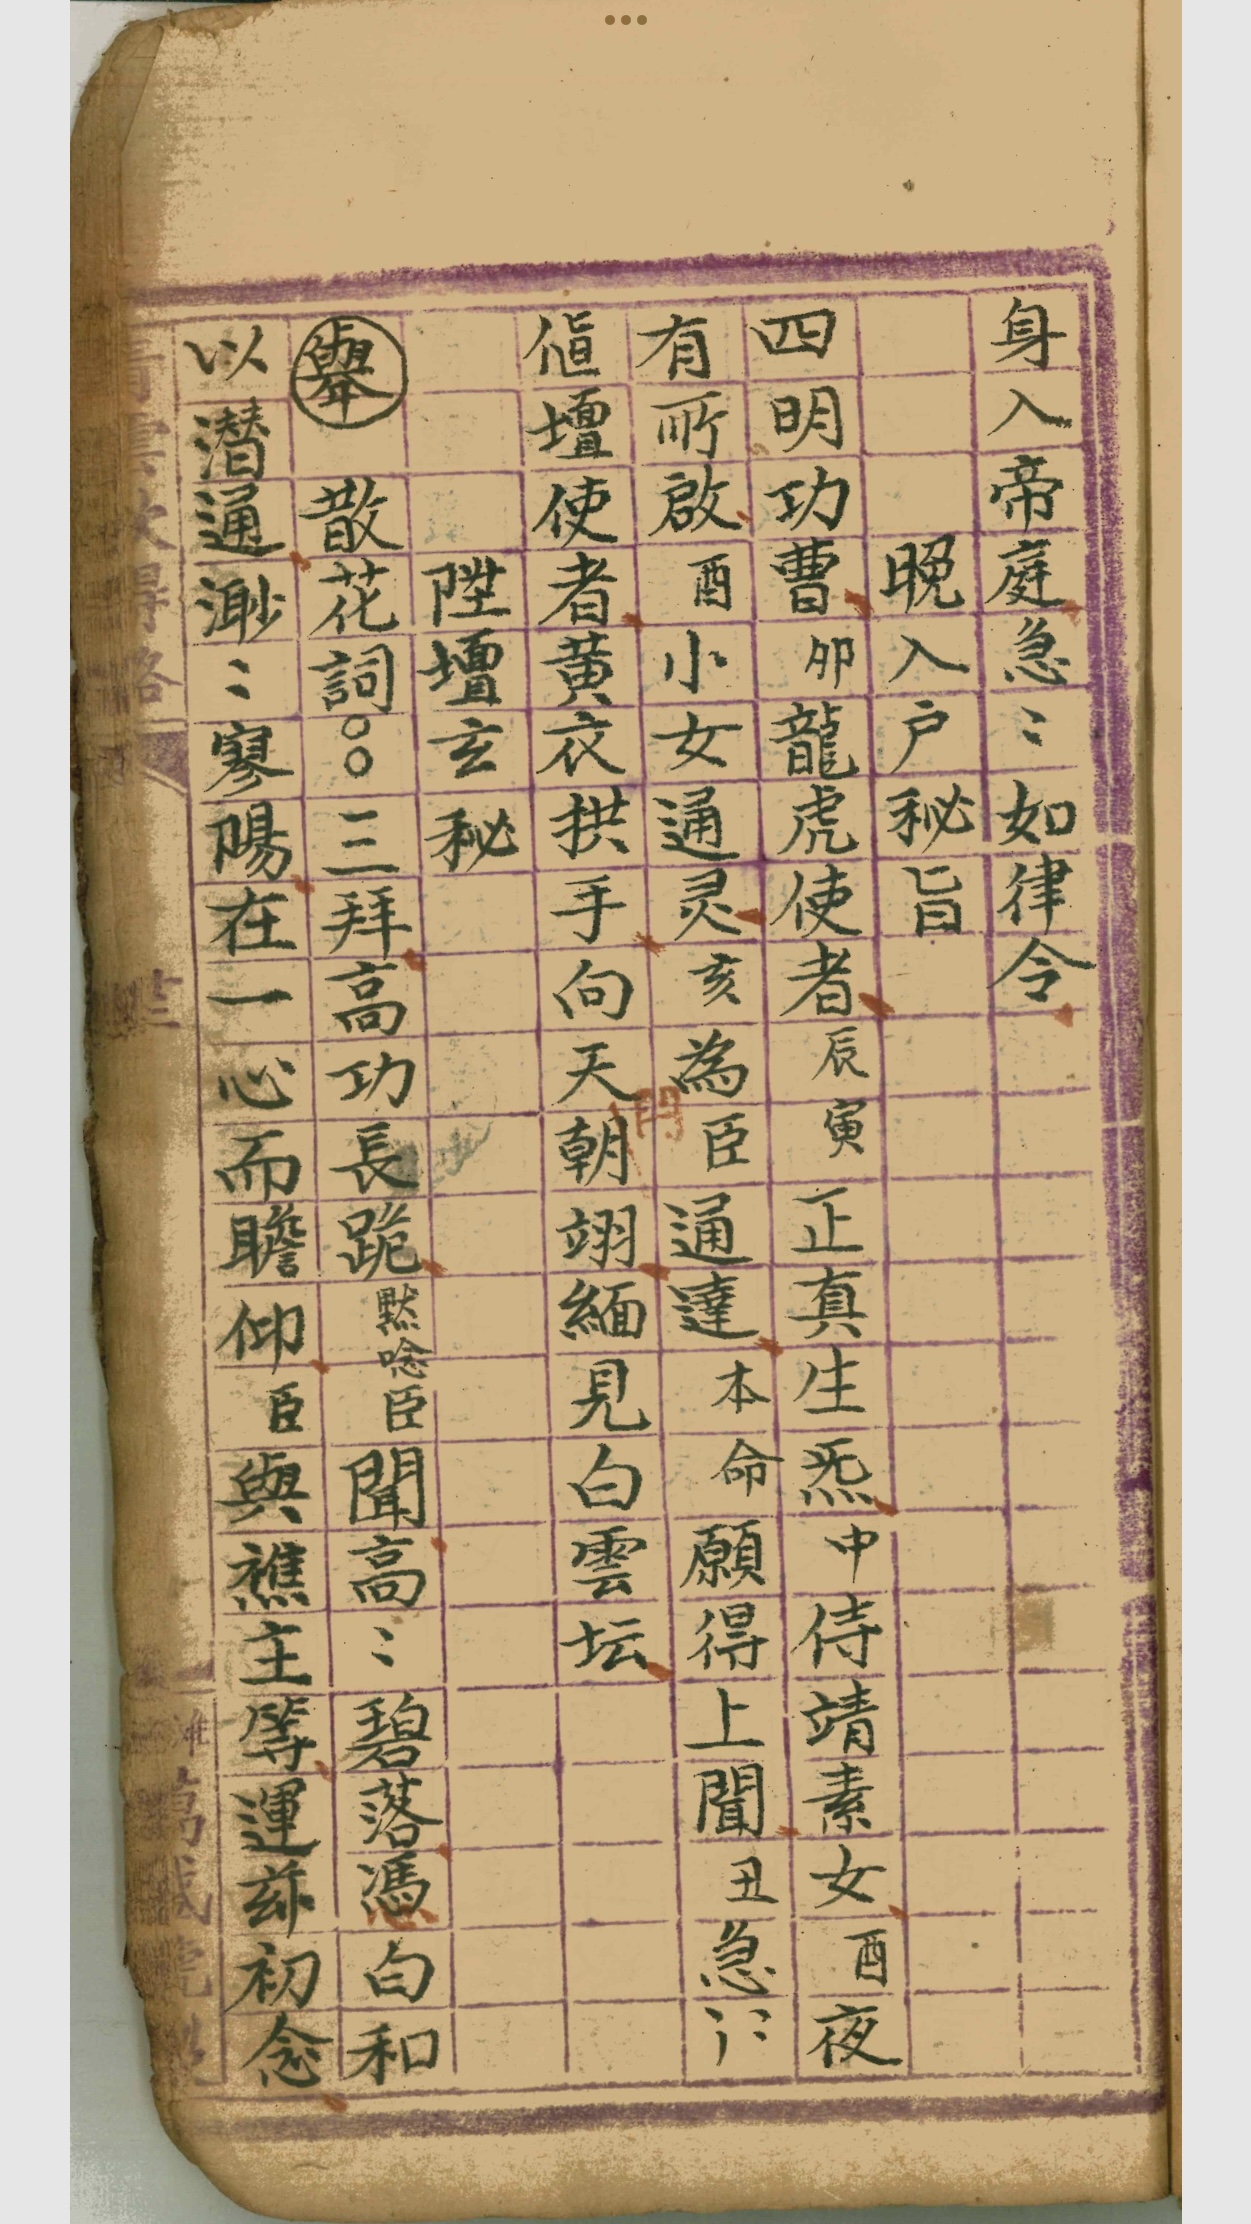 身入帝庭急〻如律令
晚入户秘旨
四明功曹卯龍虎使者辰寅正真生炁中侍靖素女酉夜
有所啟酉小女通灵亥為臣通達本命願得上聞丑急〻〻
值壇使者黄衣拱手向天朝翊緬見白雲坛
門
陞壇玄秘
舉 散花詞○○三拜高功長跪默唸臣聞高〻碧落憑白和
以潜通渺〻寥陽在一心而瞻仰臣與醮主等運兹初念